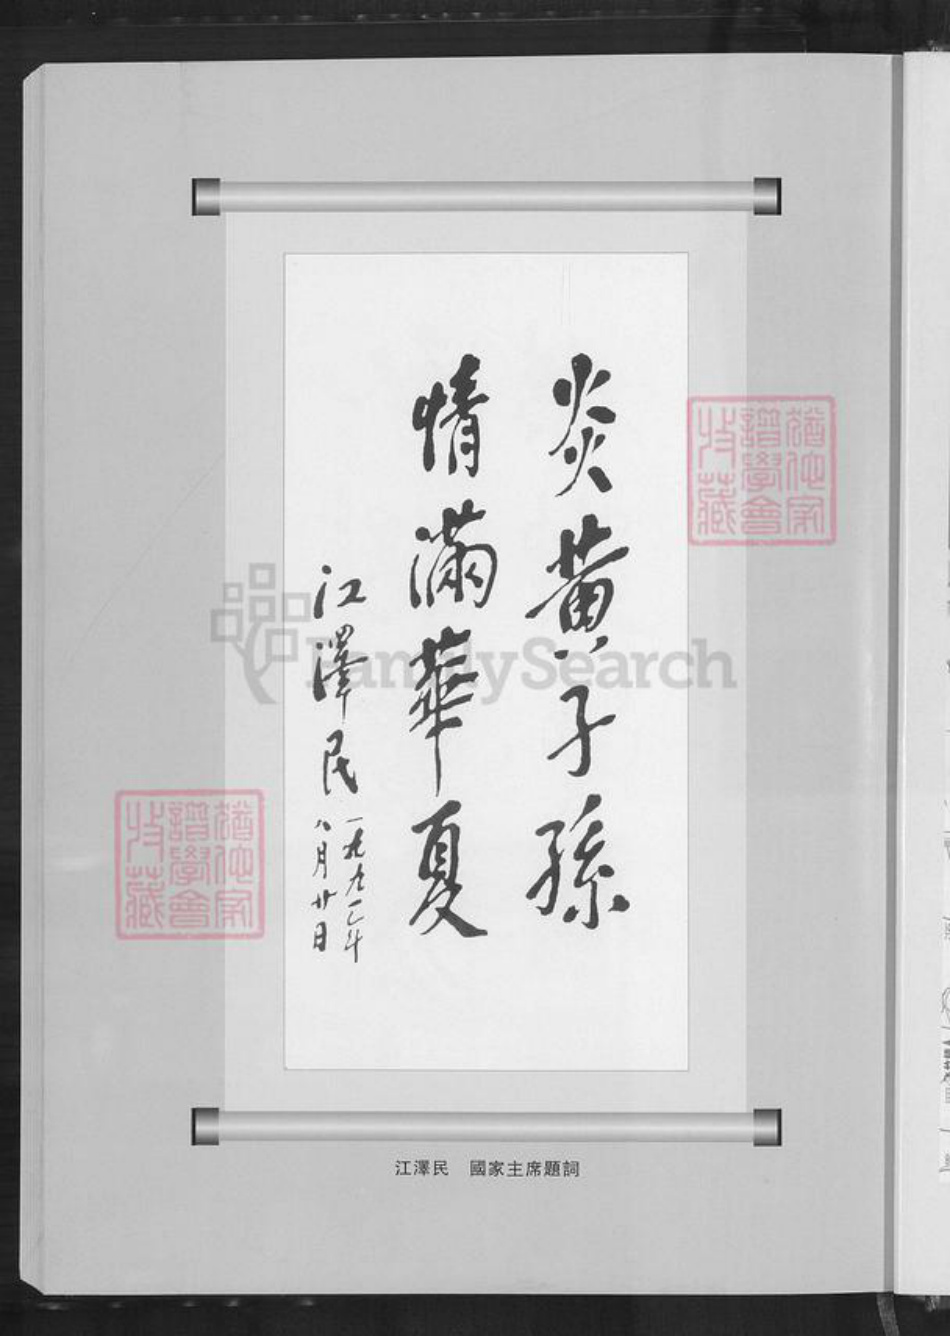 炎黃子孫
情滿華夏
江澤民
一九九一年
八月廿日
江澤民　國家主席題詞
FamilySearch
譜學會
收藏
譜學會
收藏